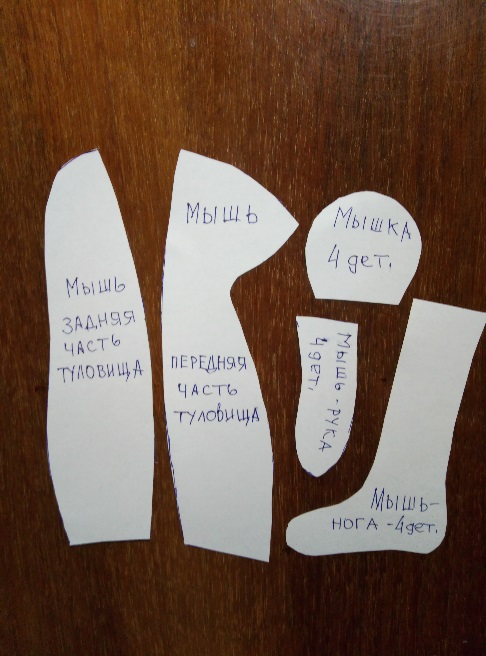 Мышь
ЗАДНЯЯ
ЧАСТЬ
ТУЛОВИЩА
Мышь
ПЕРЕДНЯЯ
ЧАСТЬ
ТУЛОВИЩА
Мышка
4 дет.
Мышь-рука
4 дет.
Мышь-
НОГА-4дет.